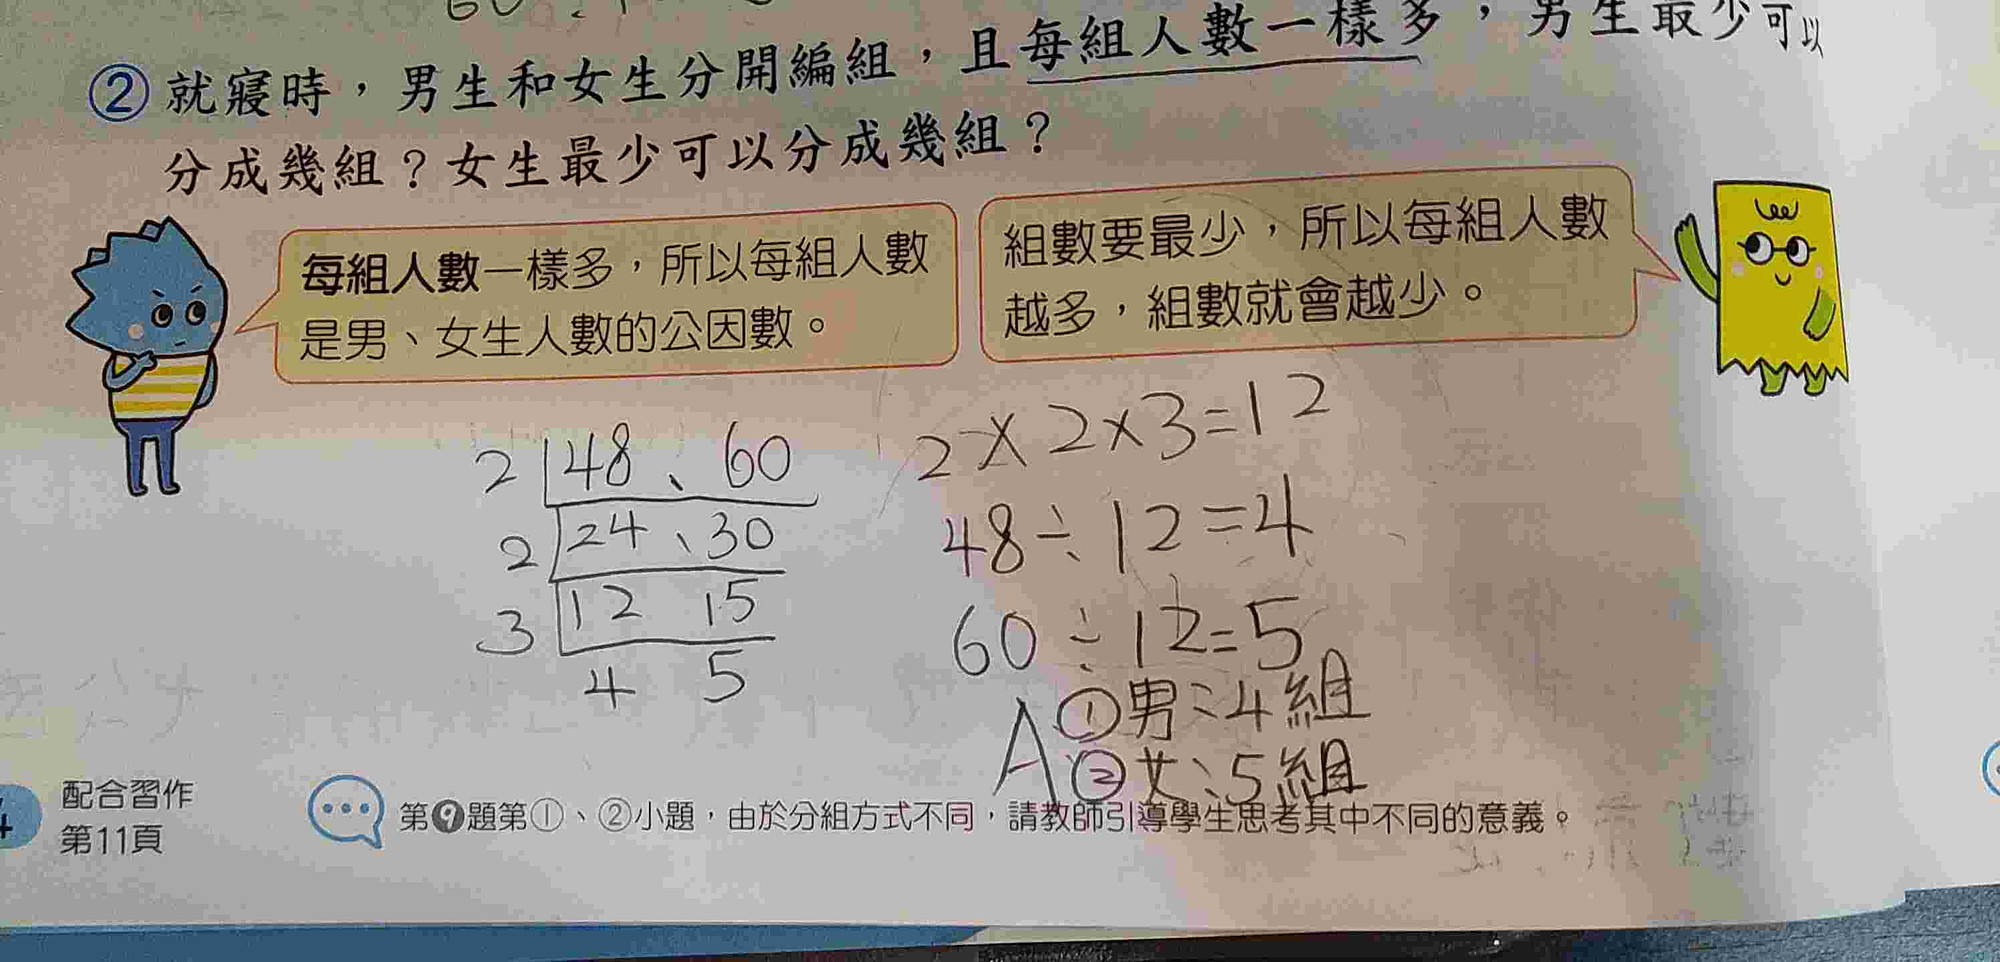 ②就寢時，男生和女生分開編組，且每組人數一樣多，男生最少可以
分成幾組？女生最少可以分成幾組？
每組人數一樣多，所以每組人數
是男、女生人數的公因數。
組數要最少，所以每組人數
越多，組數就會越少。
2 48、60
2 24、30
3 12 15
4 5
2×2×3=12
48÷12=4
60÷12=5
A①男:4組
②女:5組
配合習作
第11頁
第❾題第①、②小題，由於分組方式不同，請教師引導學生思考其中不同的意義。